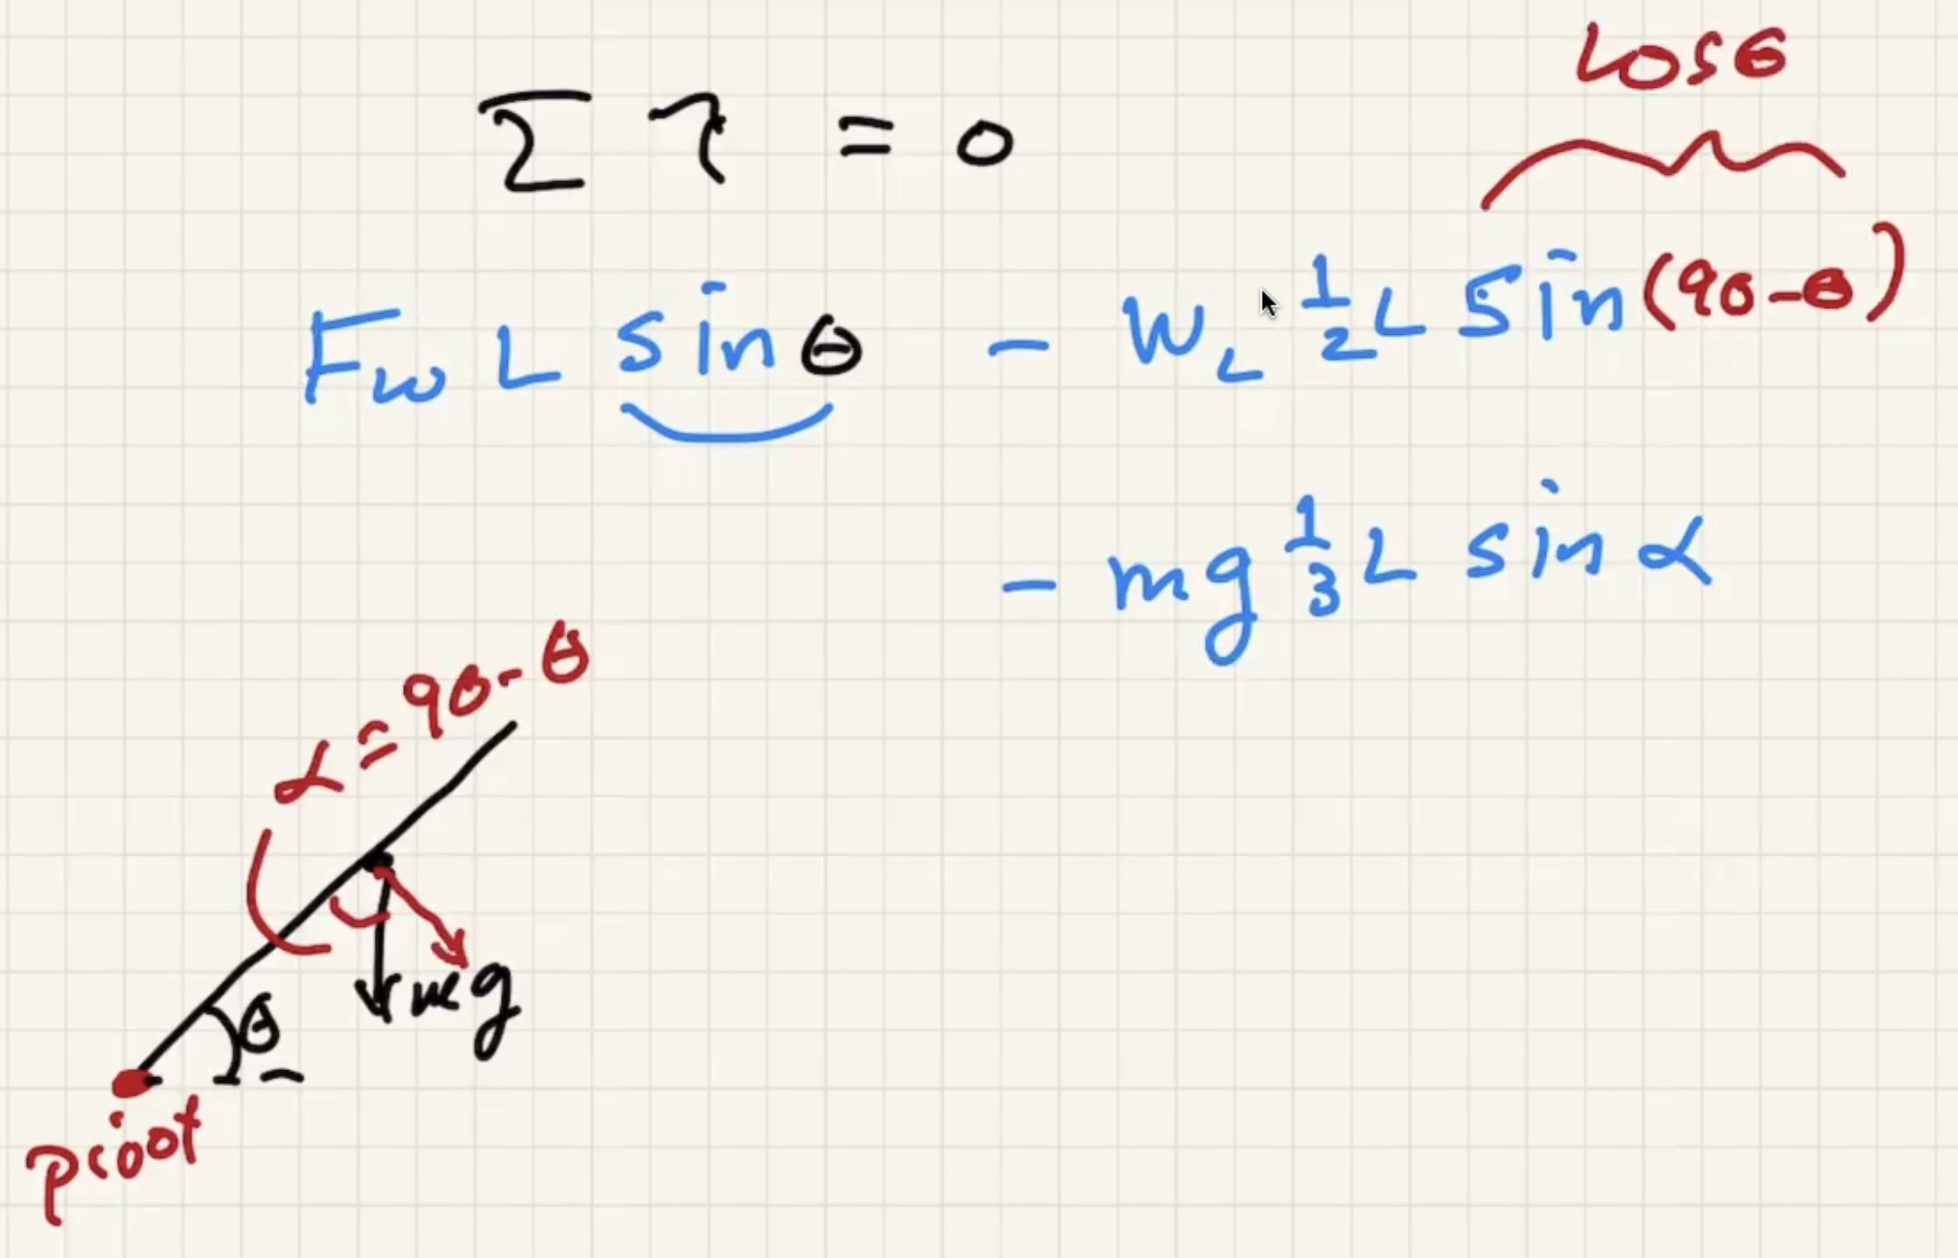 cosθ
Σ τ = 0
F_w L sinθ - W_L ½ L sin(90-θ)
- mg ⅓ L sin α
α = 90-θ
mg
θ
pivot